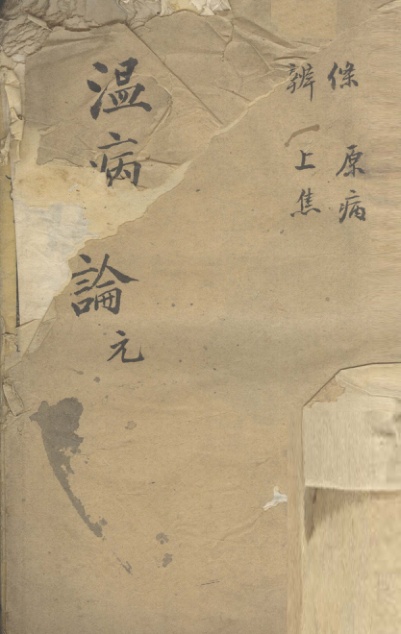 條 原病
辨 上焦
温病論元